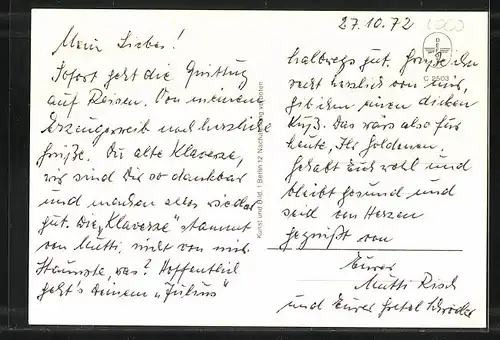 27.10.72
Mein Liebes!
Sofort geht die Quittung
auf Reisen. Von meinem
Erzeugerweib noch herzliche
Grüße. Du alte Klaverze,
wir sind Dir so dankbar
und machen alles wieder
gut. Die „Klaverze" stammt
von Mutti, nicht von mir.
Staunste, was? Hoffentlich
geht's Deinem „Julius"
halbwegs gut. Grüße ihn
recht herzlich von uns,
gib ihm einen dicken
Kuß. Das wärs also für
heute, Ihr Goldenen.
Gehabt Euch wohl und
bleibt gesund und
seid von Herzen
gegrüßt von
Eurer
Mutti Risch
und Eurer Gretel Schröder
Kunst und Bild, 1 Berlin 12 Nachahmung verboten
C 2503